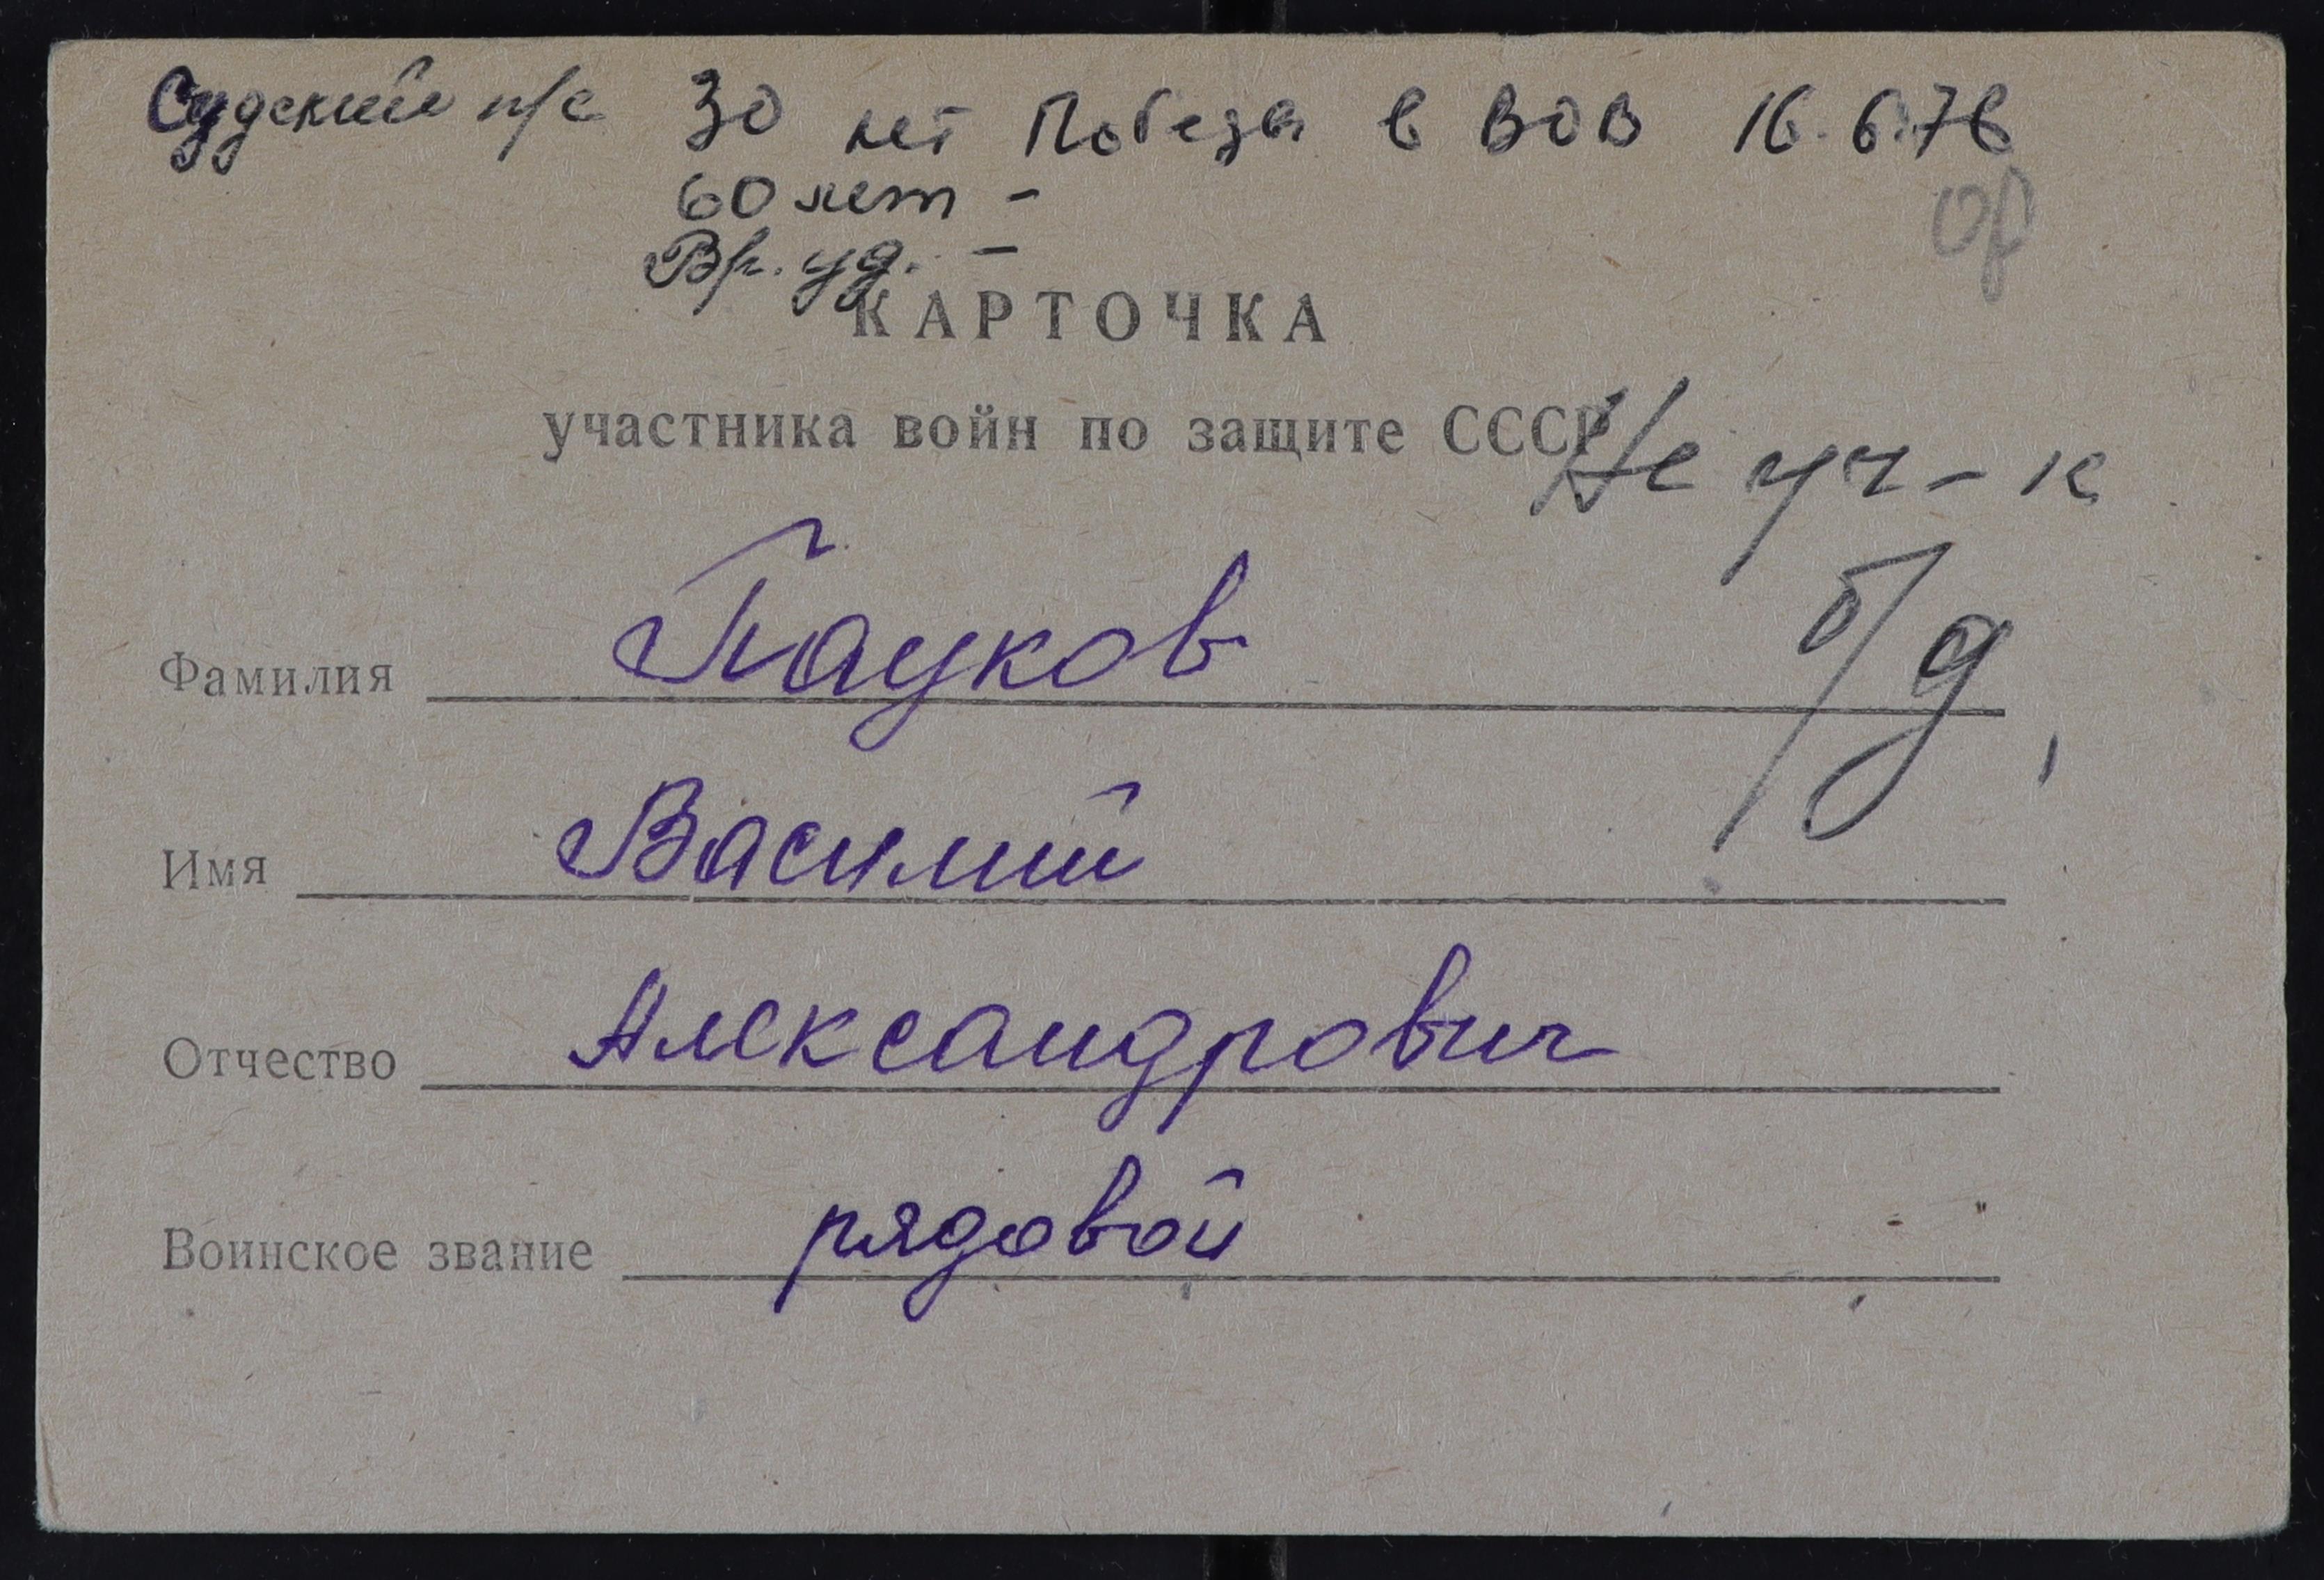 Судский п/с 30 лет Победы в ВОВ 16.6.76
60 лет -
Вр. уд. -
КАРТОЧКА
участника войн по защите СССР
Не уч-к
б/д
Фамилия Пауков
Имя Василий
Отчество Александрович
Воинское звание рядовой